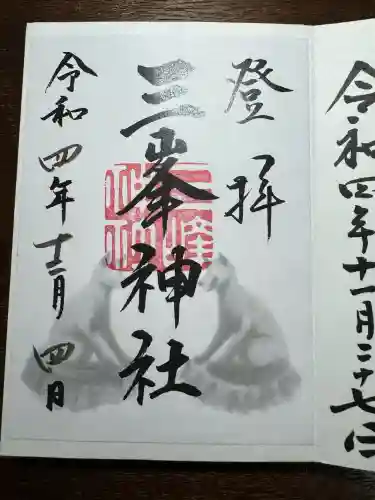 登拝
三峯神社
令和四年十二月四日
令和四年十一月二十七日